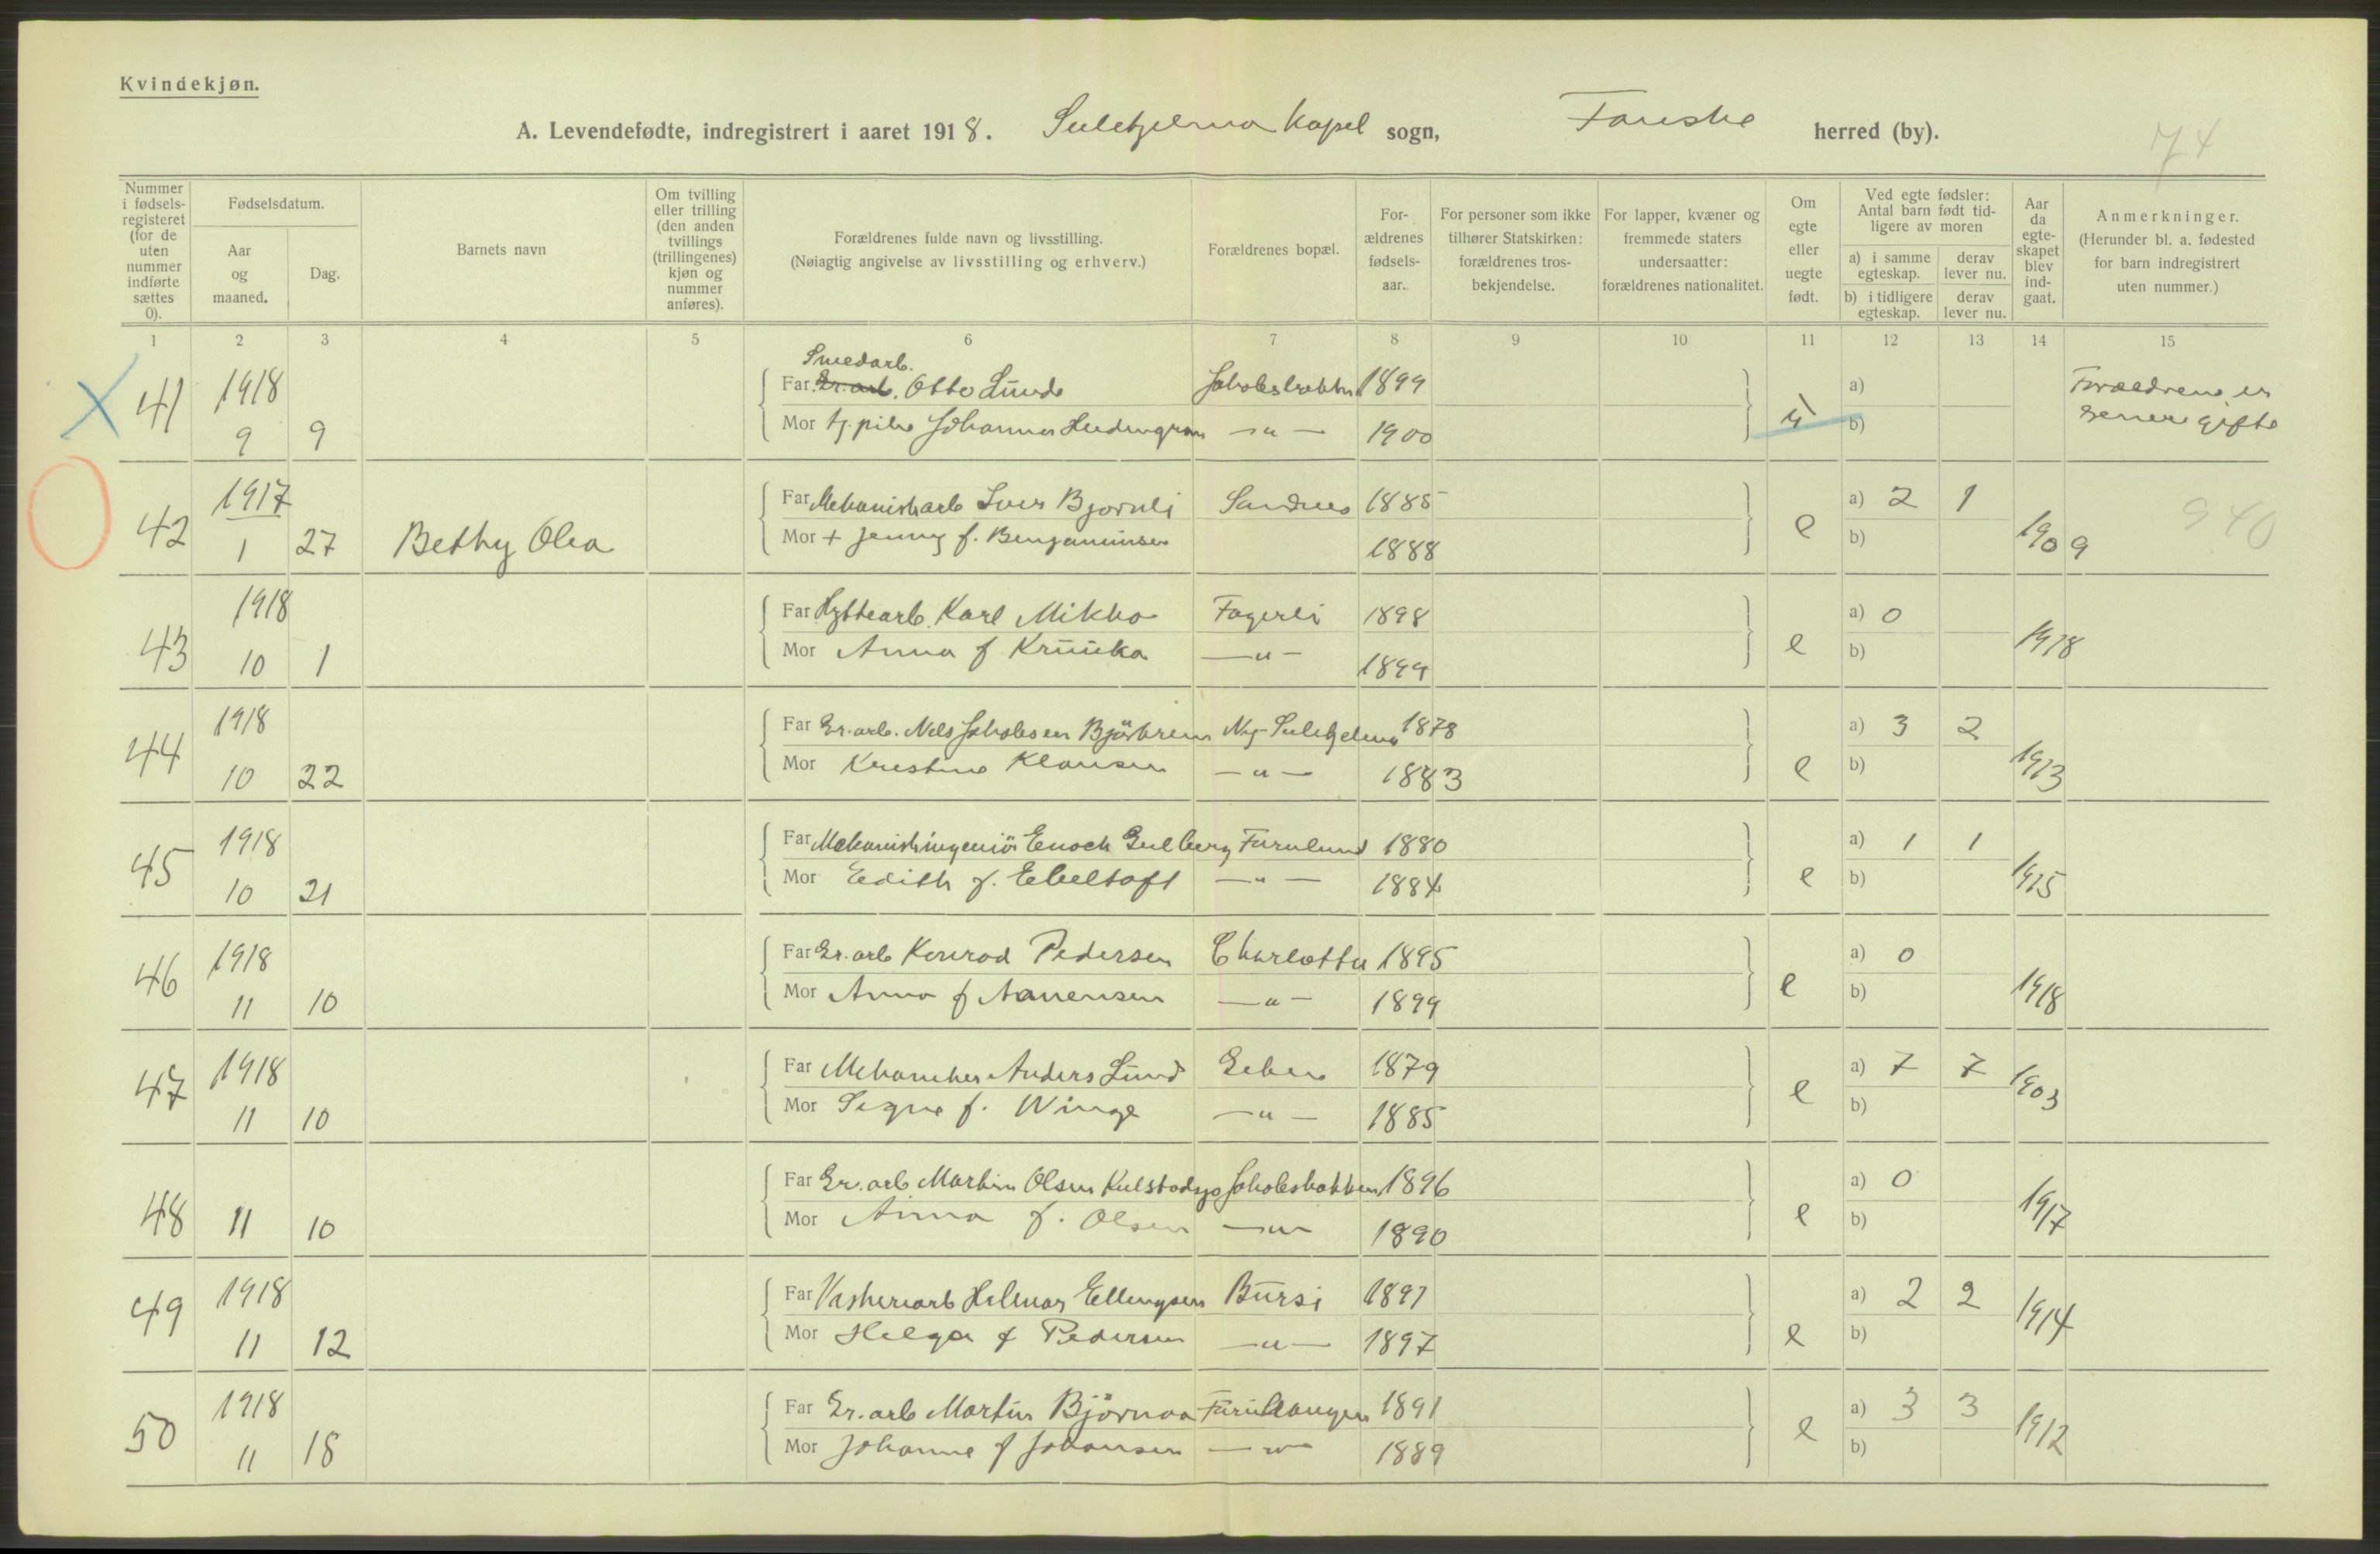 Kvindekjøn.
A. Levendefødte, indregistrert i aaret 1918. Sulitjelma Kapel sogn, Fauske herred (by).
74
Nummer i fødsels-registeret (for de uten nummer indførte sættes 0).
Fødselsdatum.
Aar og maaned.
Dag.
Barnets navn
Om tvilling eller trilling (den anden tvillings (trillingenes) kjøn og nummer anføres).
Forældrenes fulde navn og livsstilling.
(Nøiagtig angivelse av livsstilling og erhverv.)
Forældrenes bopæl.
For-ældrenes fødsels-aar.
For personer som ikke tilhører Statskirken: forældrenes tros-bekjendelse.
For lapper, kvæner og fremmede staters undersaatter: forældrenes nationalitet.
Om egte eller uegte født.
Ved egte fødsler: Antal barn født tid-ligere av moren
a) i samme egteskap.
derav lever nu.
b) i tidligere egteskap.
derav lever nu.
Aar da egte-skapet blev ind-gaat.
Anmerkninger.
(Herunder bl. a. fødested for barn indregistrert uten nummer.)
1 2 3 4 5 6 7 8 9 10 11 12 13 14 15
Smedarb.
41 1918 Far Gr.arb. Otto Lund Jakobsbakken 1899 a) Forældrene er
9 9 Mor tj.pike Johanna 〃 1900 u b) senere gifte
42 1917 Far Mekanisk arb Iver Bjornli Sandnes 1885 a) 2 1 940
1 27 Bethy Olea Mor + Jenny f. Benjaminsen 1888 e b) 1909
43 1918 Far Hyttearb. Karl Mikko Fagerli 1898 a) 0
10 1 Mor Anna f Kruuka 〃 1899 e b) 1918
44 1918 Far Gr.arb. Nels Jakobsen Ny-Sulitjelma 1878 a) 3 2
10 22 Mor Kristine Klausen 〃 1883 e b) 1913
45 1918 Far Mekanisk ingeniör Enoch Gulberg Furulund 1880 a) 1 1
10 21 Mor Edith f. Ebeltoft 〃 1884 e b) 1915
46 1918 Far Gr.arb Konrad Pedersen Charlotta 1895 a) 0
11 10 Mor Anna f Aanensen 〃 1899 e b) 1918
47 1918 Far Mekaniker Anders Lund Giken 1879 a) 7 7
11 10 Mor Signe f. Winge 〃 1885 e b) 1903
48 Far Gr.arb Martin Olsen Jakobsbakken 1896 a) 0
11 10 Mor Anna f. Olsen 〃 1890 e b) 1917
49 1918 Far Vaskeriarb Hilmar Ellingsen Bursi 1891 a) 2 2
11 12 Mor Helga f Pedersen 〃 1897 e b) 1914
50 1918 Far Gr.arb Martin Bjørnaa Furuhaugen 1891 a) 3 3
11 18 Mor Johanne f Johansen 〃 1889 e b) 1912